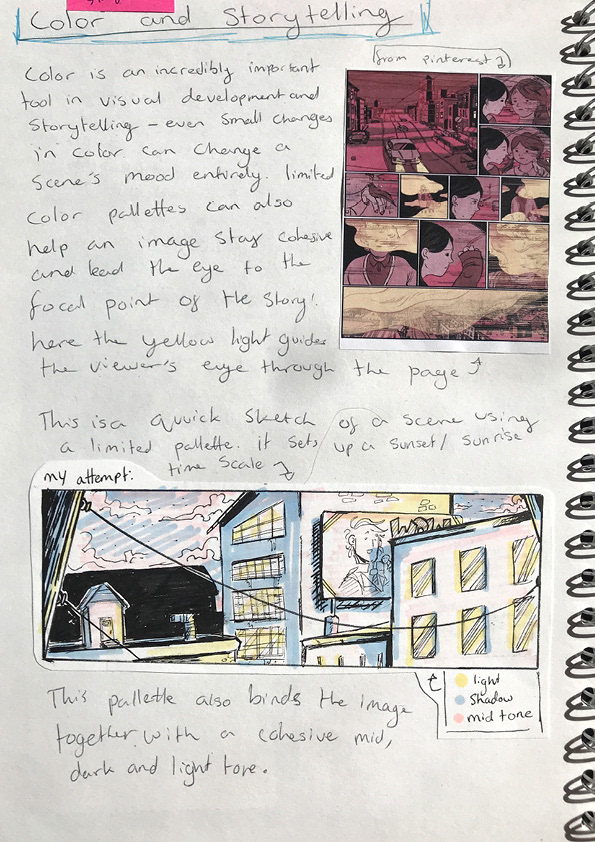 Color and Storytelling
(from pinterest)
Color is an incredibly important
tool in visual development and
Storytelling – even small changes
in color can change a
scene's mood entirely. limited
color pallettes can also
help an image stay cohesive
and lead the eye to the
focal point of the story!
here the yellow light guides
the viewer's eye through the page
This is a quuick sketch of a scene using
a limited pallette. it sets up a sunset/ sunrise
time scale
my attempt:
light
Shadow
mid tone
This pallette also binds the image
together with a cohesive mid,
dark and light tone.